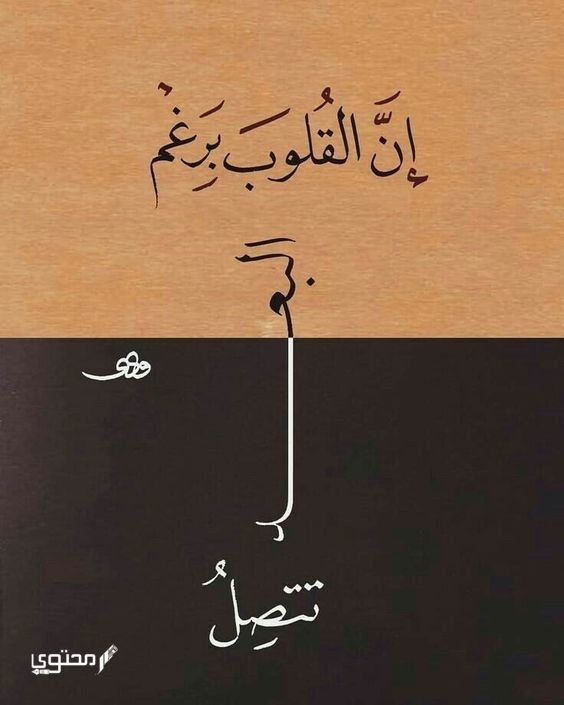 إِنَّ القُلوبَ بَرِغْمِ
البعد
تتصِلُ
محتوى